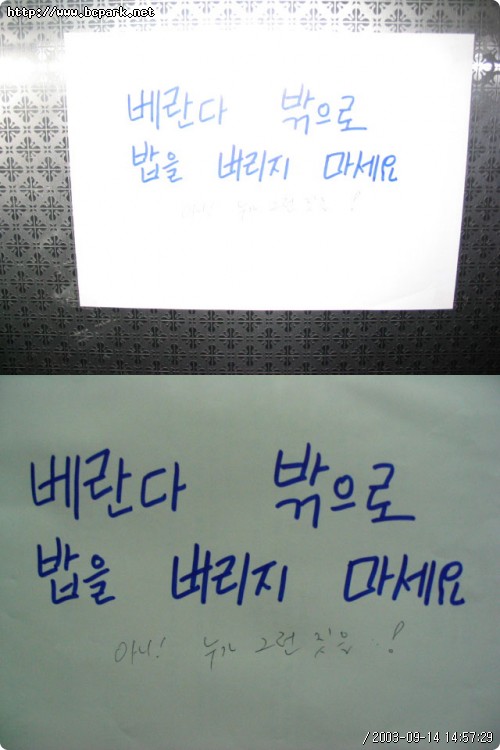 http://www.bcpark.net
베란다 밖으로
밥을 버리지 마세요
아니! 누가 그런 짓을..!
베란다 밖으로
밥을 버리지 마세요
아니! 누가 그런 짓을..!
/2003-09-14 14:57:29